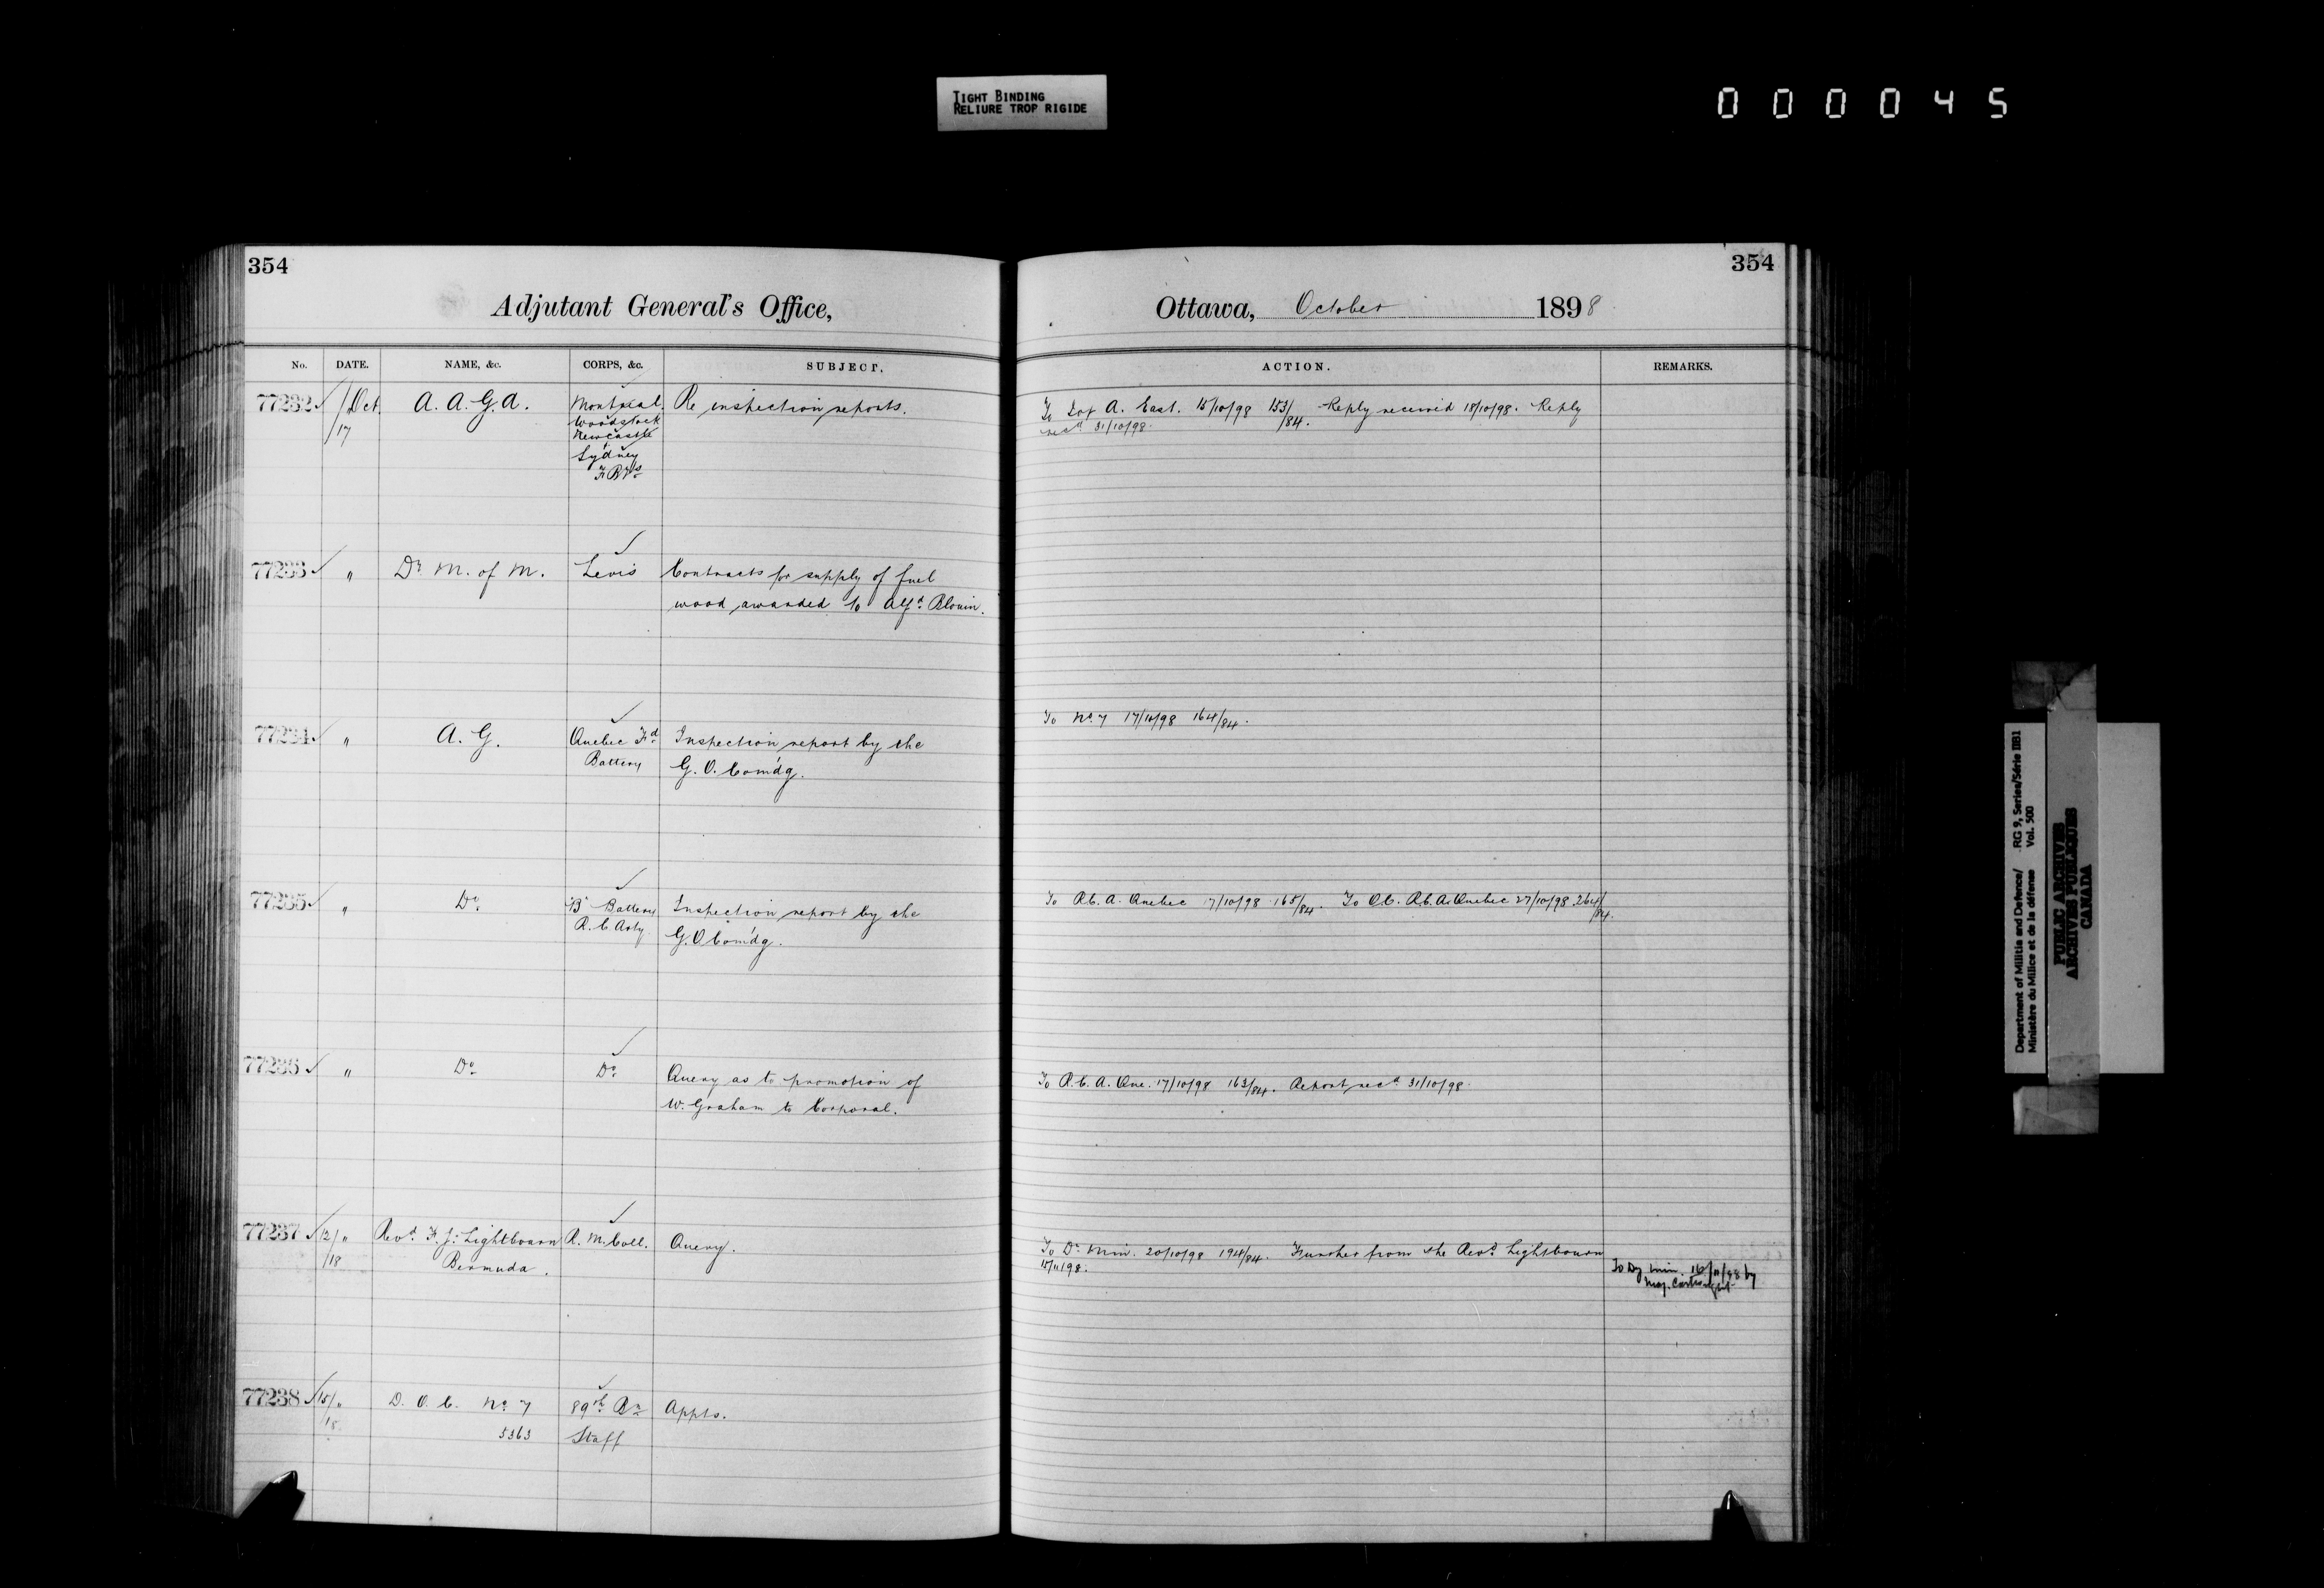 TIGHT BINDING
RELIURE TROP RIGIDE
000045
354
Adjutant General's Office,
No. DATE. NAME, &c. CORPS, &c. SUBJECT.
77232 / Oct. A. A. G. A. Montreal. Re inspection reports.
/17 Woodstock
Newcastle
Sydney
F. B'ys
77233 " Dy M. of M. Levis Contracts for supply of fuel
wood awarded to Alfd. Blouin.
77234 " A. G. Quebec Fd Inspection report by the
Battery G. O. Com'dg.
77235 " Do "B" Battery Inspection report by the
R. C. Arty. G. O Com'dg.
77236 " Do Do Query as to promotion of
W. Graham to Corporal.
77237 12/ " Revd. F. J. Lightbourn R. M. Coll. Query.
/18 Bermuda.
77238 15/ " D. O. C. No. 7 89th Bn Appts.
/18 5363 Staff
354
Ottawa, October 1898
ACTION. REMARKS.
To A. East. 15/10/98 153/84. Reply received 18/10/98. Reply
recd 31/10/98.
To No. 7 17/10/98 164/84.
To R.C. A. Quebec 17/10/98 165/84. To O.C. R.C.A. Quebec 27/10/98 264/84.
To R.C. A. Que. 17/10/98 163/84. Report recd 31/10/98.
To Dy Min. 20/10/98 194/84. Further from the Revd. Lightbourn
15/11/98.
To Dy Min 16/11/98 by
Maj. Cartwright
Department of Militia and Defence/ RG 9, Series/Série IIB1
Ministère du Milice et de la défense Vol. 500
PUBLIC ARCHIVES
ARCHIVES PUBLIQUES
CANADA